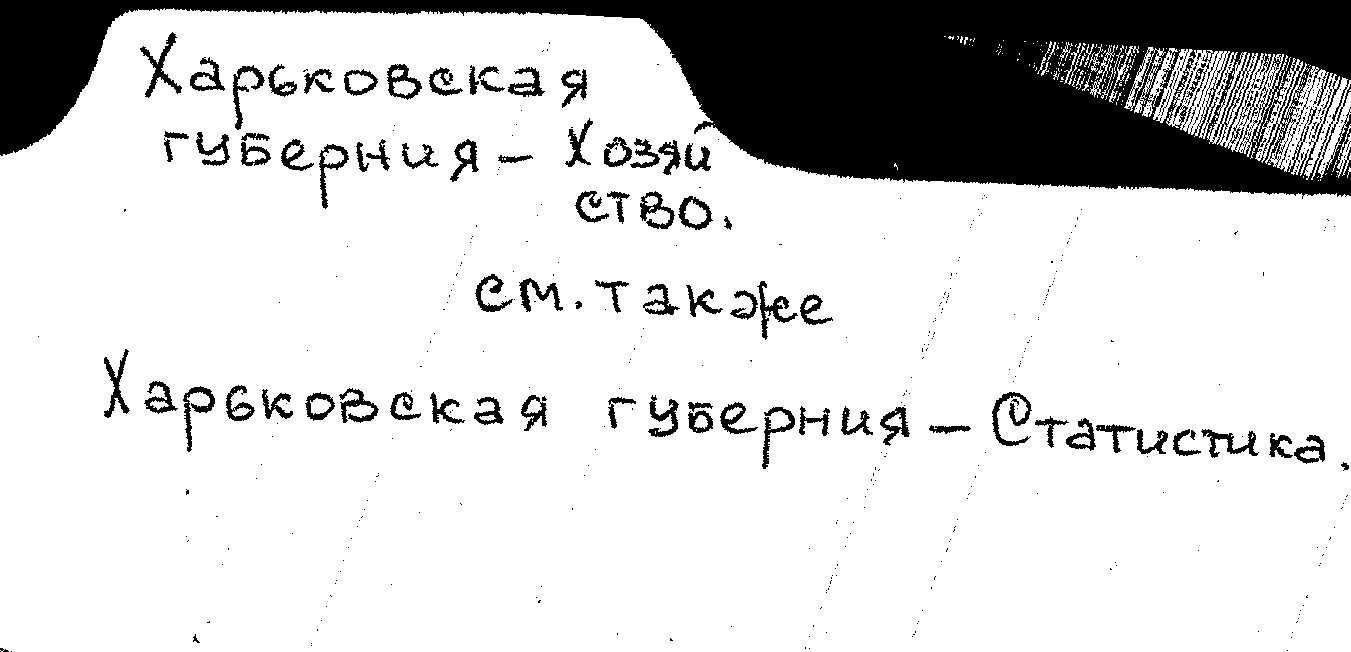 Харьковская
губерния – Хозяй
ство.
см. также
Харьковская губерния – Статистика.